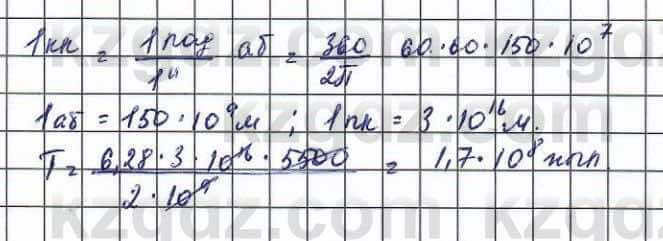 1кк = 1 рад / 1" аб = 360 / 2П 60·60·150·10⁷
1аб = 150·10⁹м ; 1 пк = 3·10¹⁶м.
T = 6,28·3·10¹⁶·5500 / 2·10⁹ = 1,7·10⁸ жыл.